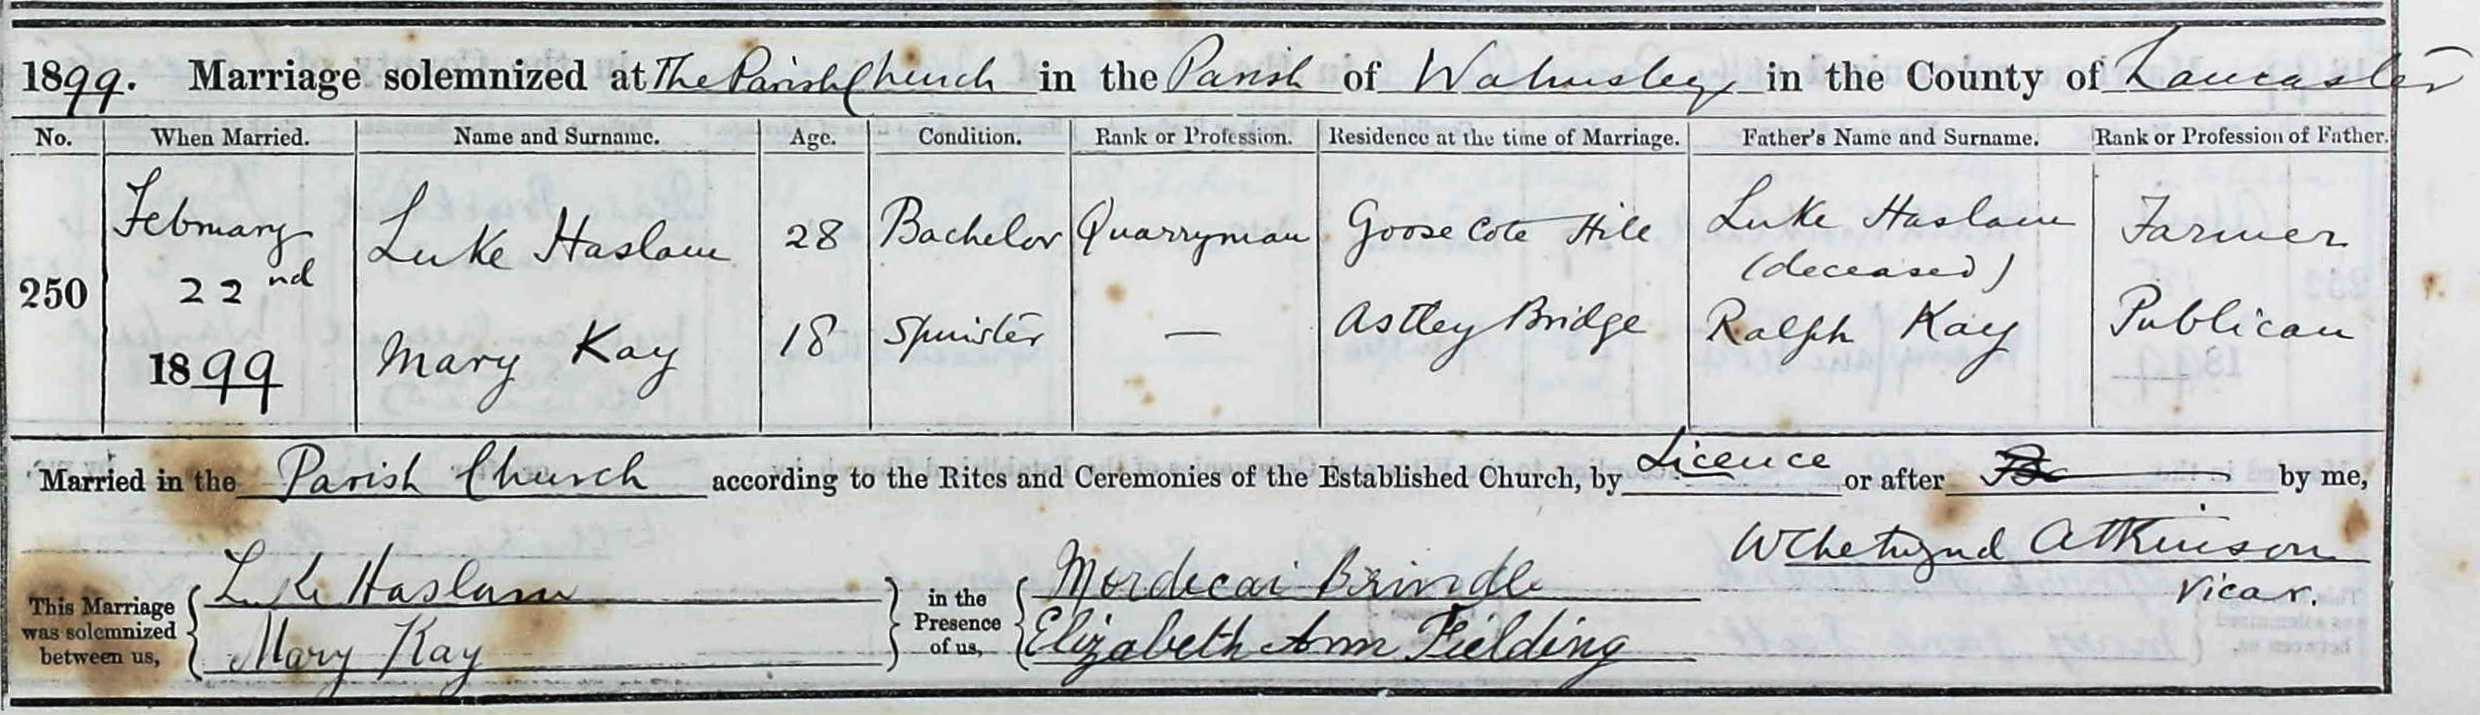 1899. Marriage solemnized at The Parish Church in the Parish of Walmsley in the County of Lancaster
No. When Married. Name and Surname. Age. Condition. Rank or Profession. Residence at the time of Marriage. Father's Name and Surname. Rank or Profession of Father.
250 February 22nd 1899
Luke Haslam 28 Bachelor Quarryman Goose Cote Hill Luke Haslam (deceased) Farmer
Mary Kay 18 Spinster — Astley Bridge Ralph Kay Publican
Married in the Parish Church according to the Rites and Ceremonies of the Established Church, by Licence or after by me,
W Chetwynd Atkinson
Vicar.
This Marriage was solemnized between us, { Luke Haslam } in the Presence of us, { Mordecai Brindle
Mary Kay Elizabeth Ann Fielding